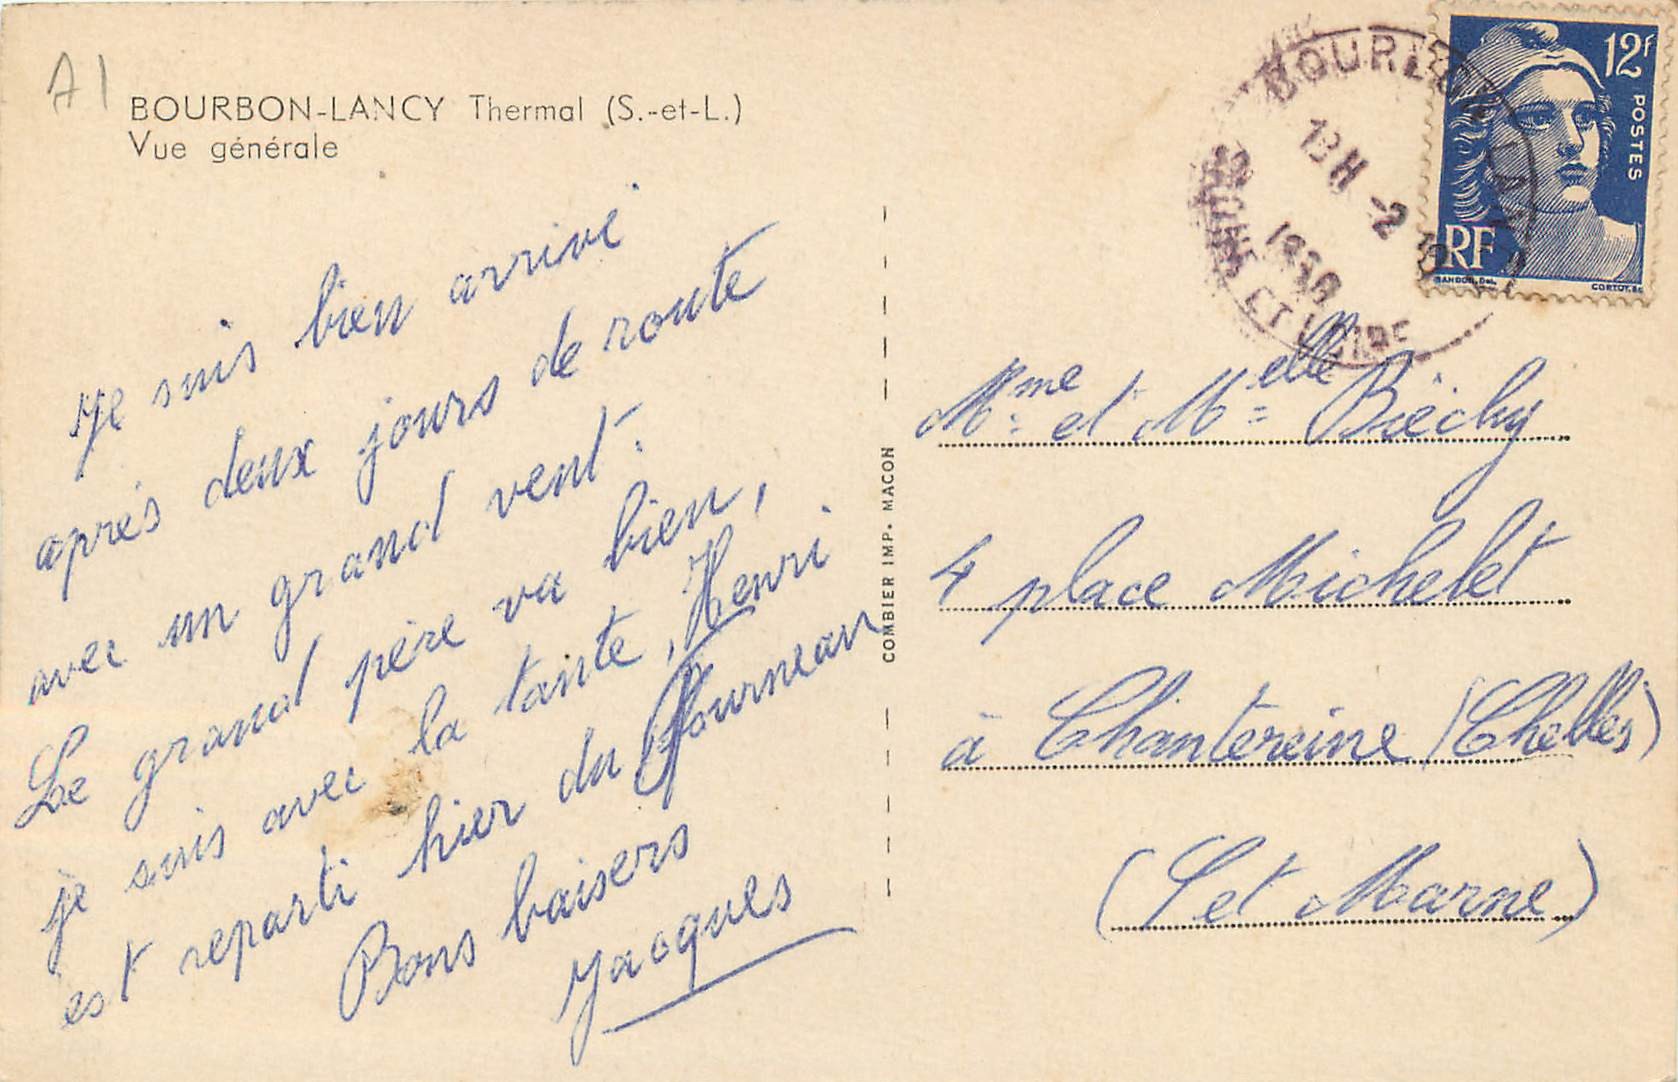 A1
BOURBON-LANCY Thermal (S.-et-L.)
Vue générale
Je suis bien arrivé
après deux jours de route
avec un grand vent.
Le grand père va bien,
je suis avec la tante, Henri
est reparti hier du Fourneau
Bons baisers
Jacques
COMBIER IMP. MACON
BOURBON-LANCY
13H -2
1950
SAONE ET LOIRE
12f
POSTES
RF
GANDON, Del.
CORTOT, Sc
Mme et Melle Bréchy
4 place Michelet
à Chantereine (Chelles)
(S et Marne)